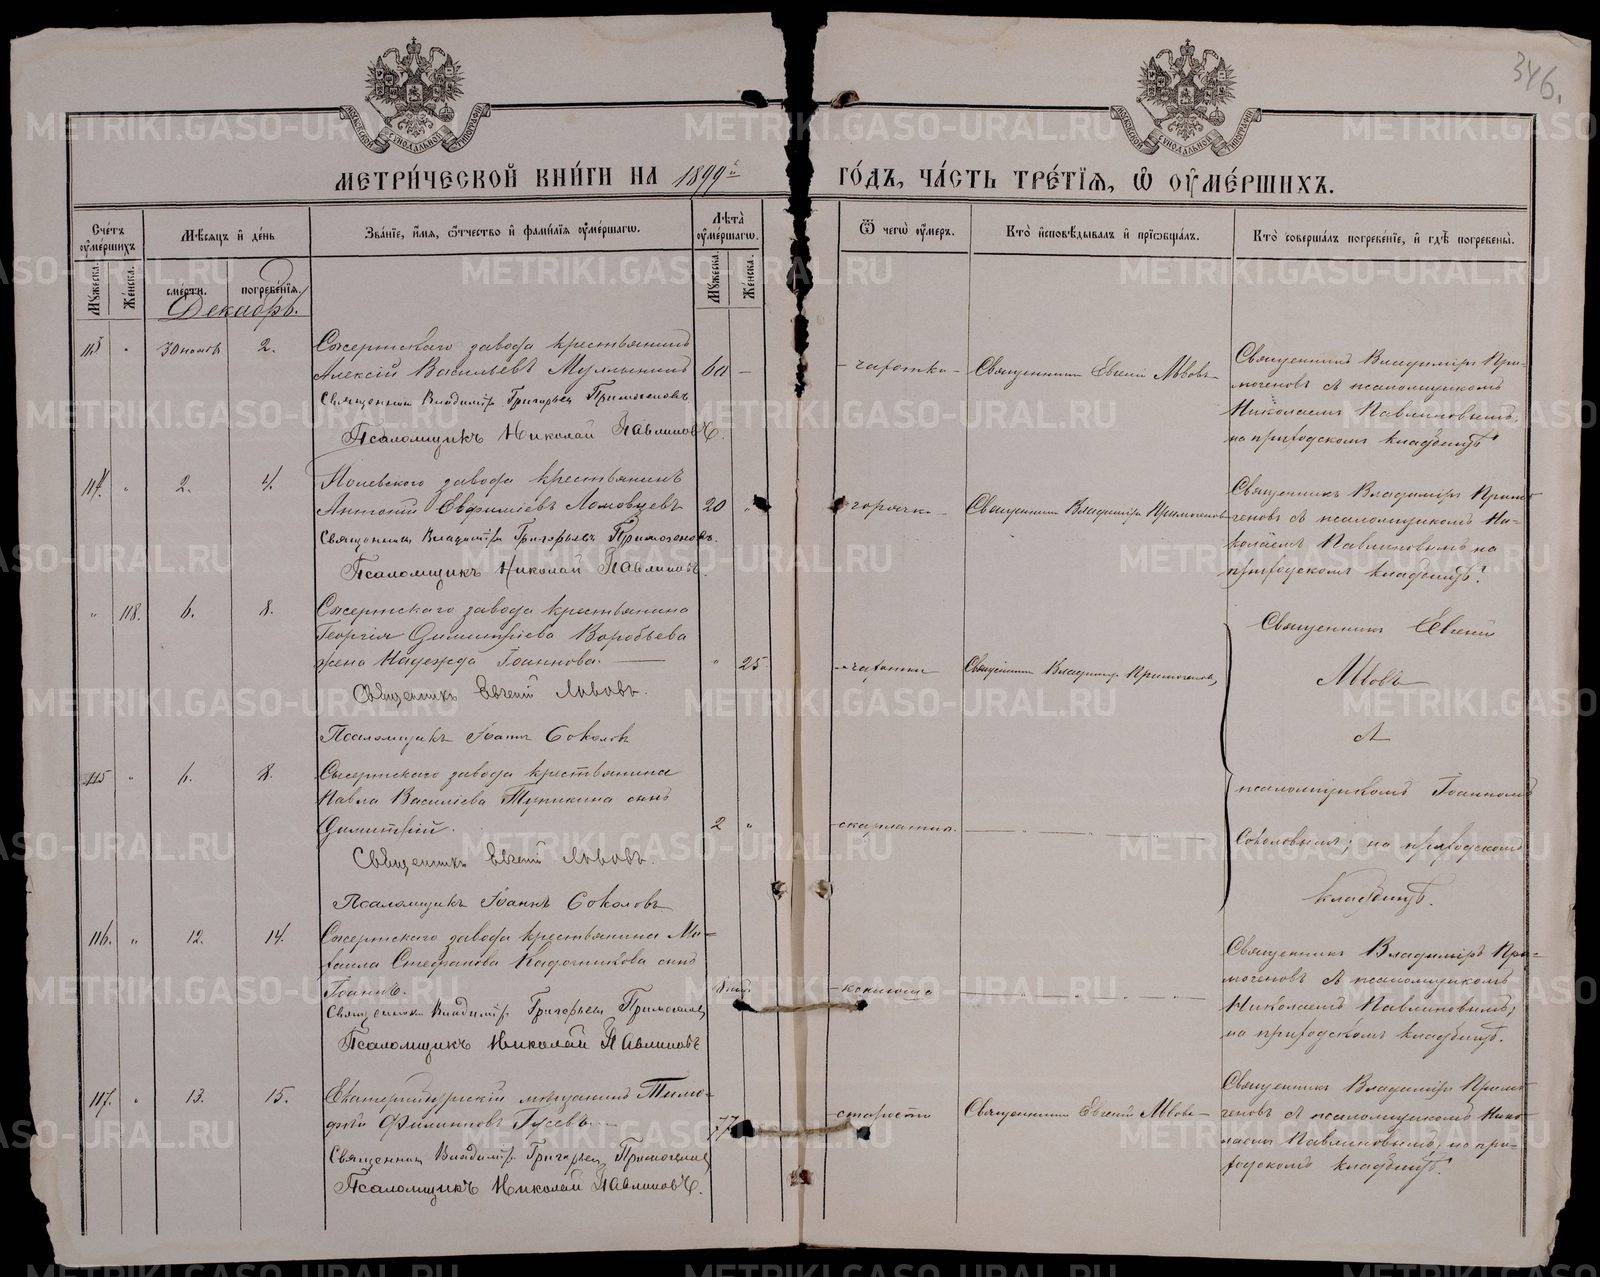 346.
МЕТРИ́ЧЕСКОЙ КНИ́ГИ НА 1899й ГО́ДЪ, ЧА́СТЬ ТРЕ́ТІЯ, Ѡ҆ ОУ҆МЕ́РШИХЪ.
Сче́тъ оу҆ме́ршихъ
Мѣ́сяцъ и҆ де́нь
Зва́ніе, и҆́мя, ѻ҆́тчество и҆ фами́лія оу҆ме́ршагѡ.
Лѣ́та оу҆ме́ршагѡ.
Ѿ чегѡ̀ оу҆́меръ.
Кто̀ и҆сповѣ́дывалъ и҆ пріѡбща́лъ.
Кто̀ соверша́лъ погребе́ніе, и҆ гдѣ̀ погребены̀.
Мꙋ́жеска.
Же́нска.
сме́рти.
погребе́нія.
Мꙋ́жеска.
Же́нска.
Декабрь.
113 " 30 нояб. 2.
Сысертскаго завода крестьянинъ
Алексій Васильевъ 60 —
Священникъ Владиміръ Григорьевъ Примогеновъ
Псаломщикъ Николай Павлиновъ.
— чахотки —
Священникъ Евгеній Львовъ
Священникъ Владиміръ При-
могеновъ съ псаломщикомъ
Николаемъ Павлиновымъ;
на приходскомъ кладбищѣ
114. " 2. 4.
Полевского завода крестьянинъ
Антоній Евфиміевъ Ломовцевъ 20 "
Священникъ Владиміръ Григорьевъ Примогеновъ.
Псаломщикъ Николай Павлиновъ.
горячки
Священникъ Владиміръ Примогеновъ
Священникъ Владиміръ Примо-
геновъ съ псаломщикомъ Ни-
колаемъ Павлиновымъ на
приходскомъ кладбищѣ.
" 118. 6. 8.
Сысертскаго завода крестьянина
Георгія Димитріева Воробьева
жена Надежда Іоаннова. — " 25
Священникъ Евгеній Львовъ.
Псаломщикъ Іоаннъ Соколовъ
— чахотки
Священникъ Владиміръ Примогеновъ,
Священникъ Евгеній
Львовъ
съ
псаломщикомъ Іоанномъ
Соколовымъ; на приходскомъ
кладбищѣ.
115 " 6. 8.
Сысертскаго завода крестьянина
Павла Василіева сынъ
Димитрій. 2 "
Священникъ Евгеній Львовъ.
Псаломщикъ Іоаннъ Соколовъ
— скарлатина.
116. " 12. 14.
Сысертскаго завода крестьянина Ми-
хаила Стефанова Кадочникова сынъ
Іоаннъ.
Священникъ Владиміръ Григорьевъ Примогеновъ
Псаломщикъ Николай Павлиновъ
Священникъ Владиміръ При-
могеновъ съ псаломщикомъ
Николаемъ Павлиновымъ;
на приходскомъ кладбищѣ.
117. " 13. 15.
Екатеринбургскій мѣщанинъ Тимо-
фей Филипповъ Гусевъ. — 77
Священникъ Владиміръ Григорьевъ Примогеновъ
Псаломщикъ Николай Павлиновъ.
— старости
Священникъ Евгеній Львовъ —
Священникъ Владиміръ Примо-
геновъ съ псаломщикомъ Нико-
лаемъ Павлиновымъ, на при-
ходскомъ кладбищѣ.